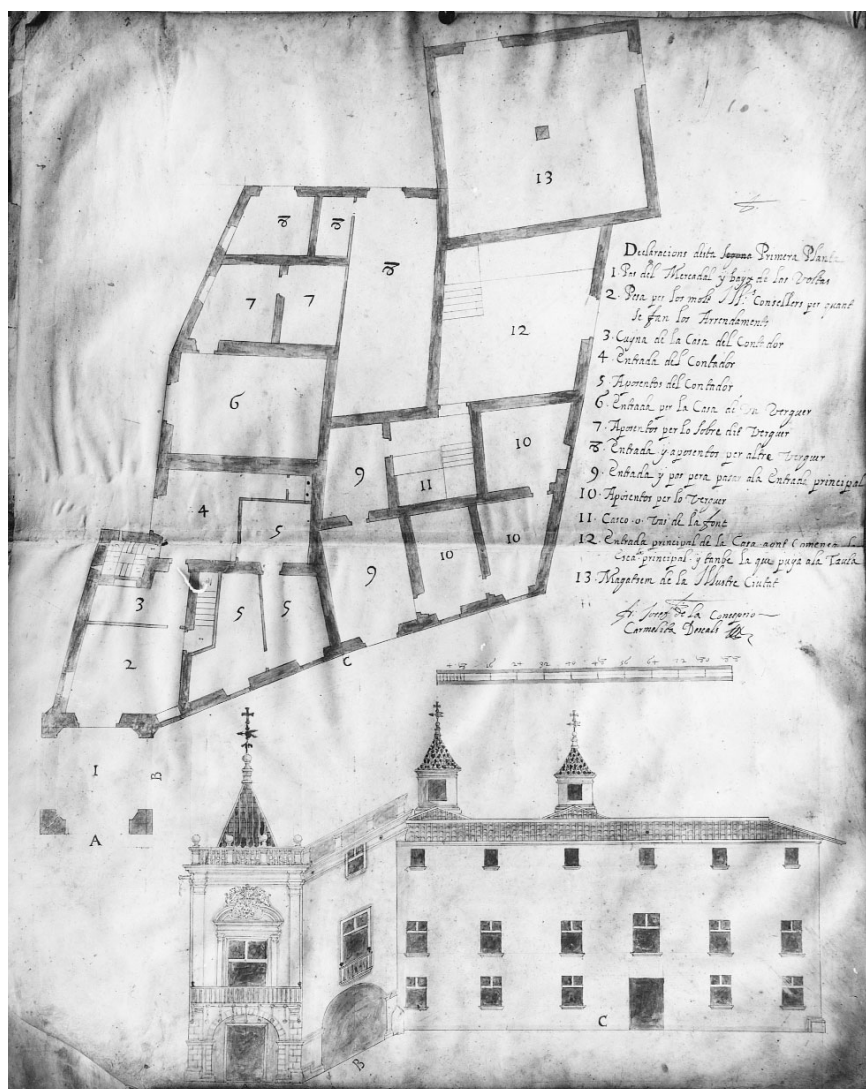 Declaracions desta Segona Primera Planta
1 Pas del Mercadal y baxo de los Voltas
2 Pesa per los molt Ill.s Consellers per quant
se fan los Arrendaments
3 Cuyna de la Casa del Contador
4 Entrada del Contador
5 Aposentos del Contador
6 Entrada per la Casa de Un Verguer
7 Aposentos per lo sobre dit Verguer
8 Entrada y aposentos per altre Verguer
9 Entrada y pas pera pasar ala Entrada principal
10 Aposentos per lo Verguer
11 Casco o Vas de la font
12 Entrada principal de la Casa aont Comensa la
Escala principal y tanbe la que puya ala Taula
13 Magatzem de la Illustre Ciutat
Fr. Josep de la Concepcio
Carmelita Descals
13
8
8
8
7
7
12
6
10
9
11
4
5
10
10
9
3
5
5
2
C
1
B
A
C
B